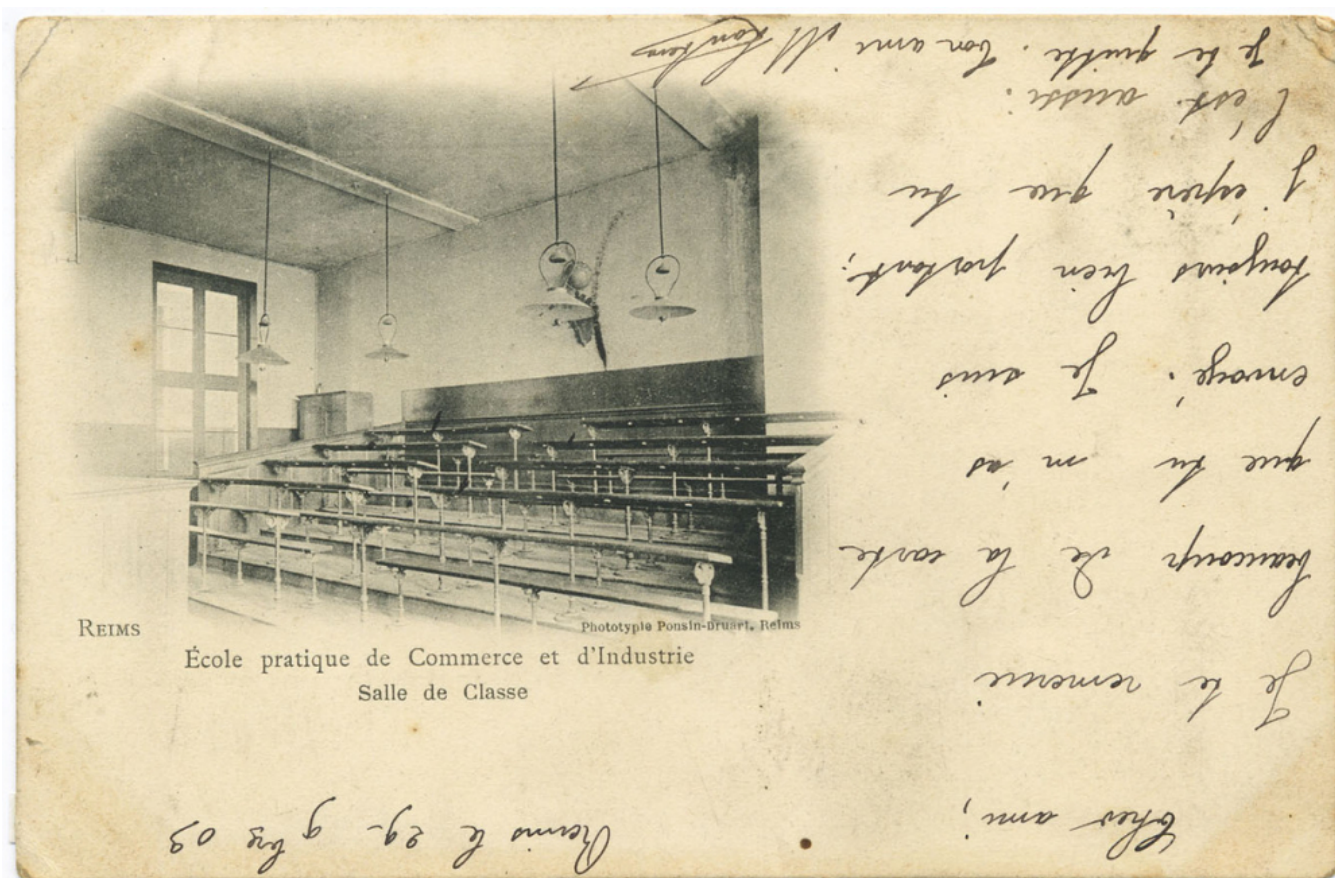 REIMS
Phototypie Ponsin-Druart, Reims
École pratique de Commerce et d'Industrie
Salle de Classe
Reims le 29 9bre 03
Cher ami,
Je te remercie
beaucoup de la carte
que tu m'as
envoyé. Je suis
toujours bien portant,
j'espère que tu
l'est aussi.
Je te quitte. Ton ami M